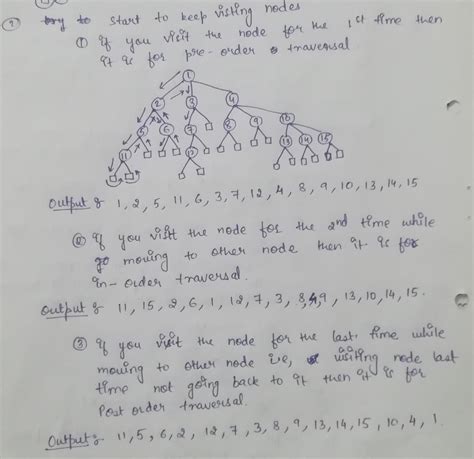 ? try to start to keep visting nodes
① if you visit the node for the 1st time then
it is for pre-order traversal
1
2 3 4
5 6 7 8 9 10
11 12 13 14 15
Output : 1, 2, 5, 11, 6, 3, 7, 12, 4, 8, 9, 10, 13, 14, 15
② if you visit the node for the 2nd time while
go moving to other node then it is for
in-order traversal.
Output : 11, 15, 2, 6, 1, 12, 7, 3, 8, 4, 9, 13, 10, 14, 15.
③ if you visit the node for the last time while
moving to other node i.e, visiting node last
time not going back to it then it is for
Post order traversal.
Output : 11, 5, 6, 2, 12, 7, 3, 8, 9, 13, 14, 15, 10, 4, 1.